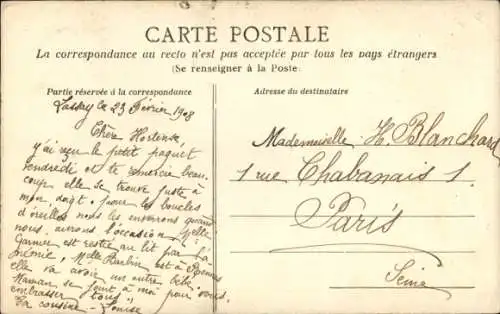 CARTE POSTALE
La correspondance au recto n'est pas acceptée par tous les pays étrangers
(Se renseigner à la Poste)
Partie réservée à la correspondance
Adresse du destinataire
Lassay le 23 Février 1908
Chère Hortense,
j'ai reçu le petit paquet
vendredi et te remercie beau-
coup elle se trouve juste à
mon doigt. pour les boucles
d'oreilles nous les enverrons quand
nous aurons l'occasion. Melle
Garnier est restée au lit par l'a
némie, Melle Barbin est à Rennes
elle va avoir un autre bébé
Maman se joint à moi pour vous
embrasser tous,
Ta cousine Louise
Mademoiselle H. Blanchard
1 rue Chabanais 1
Paris
Seine